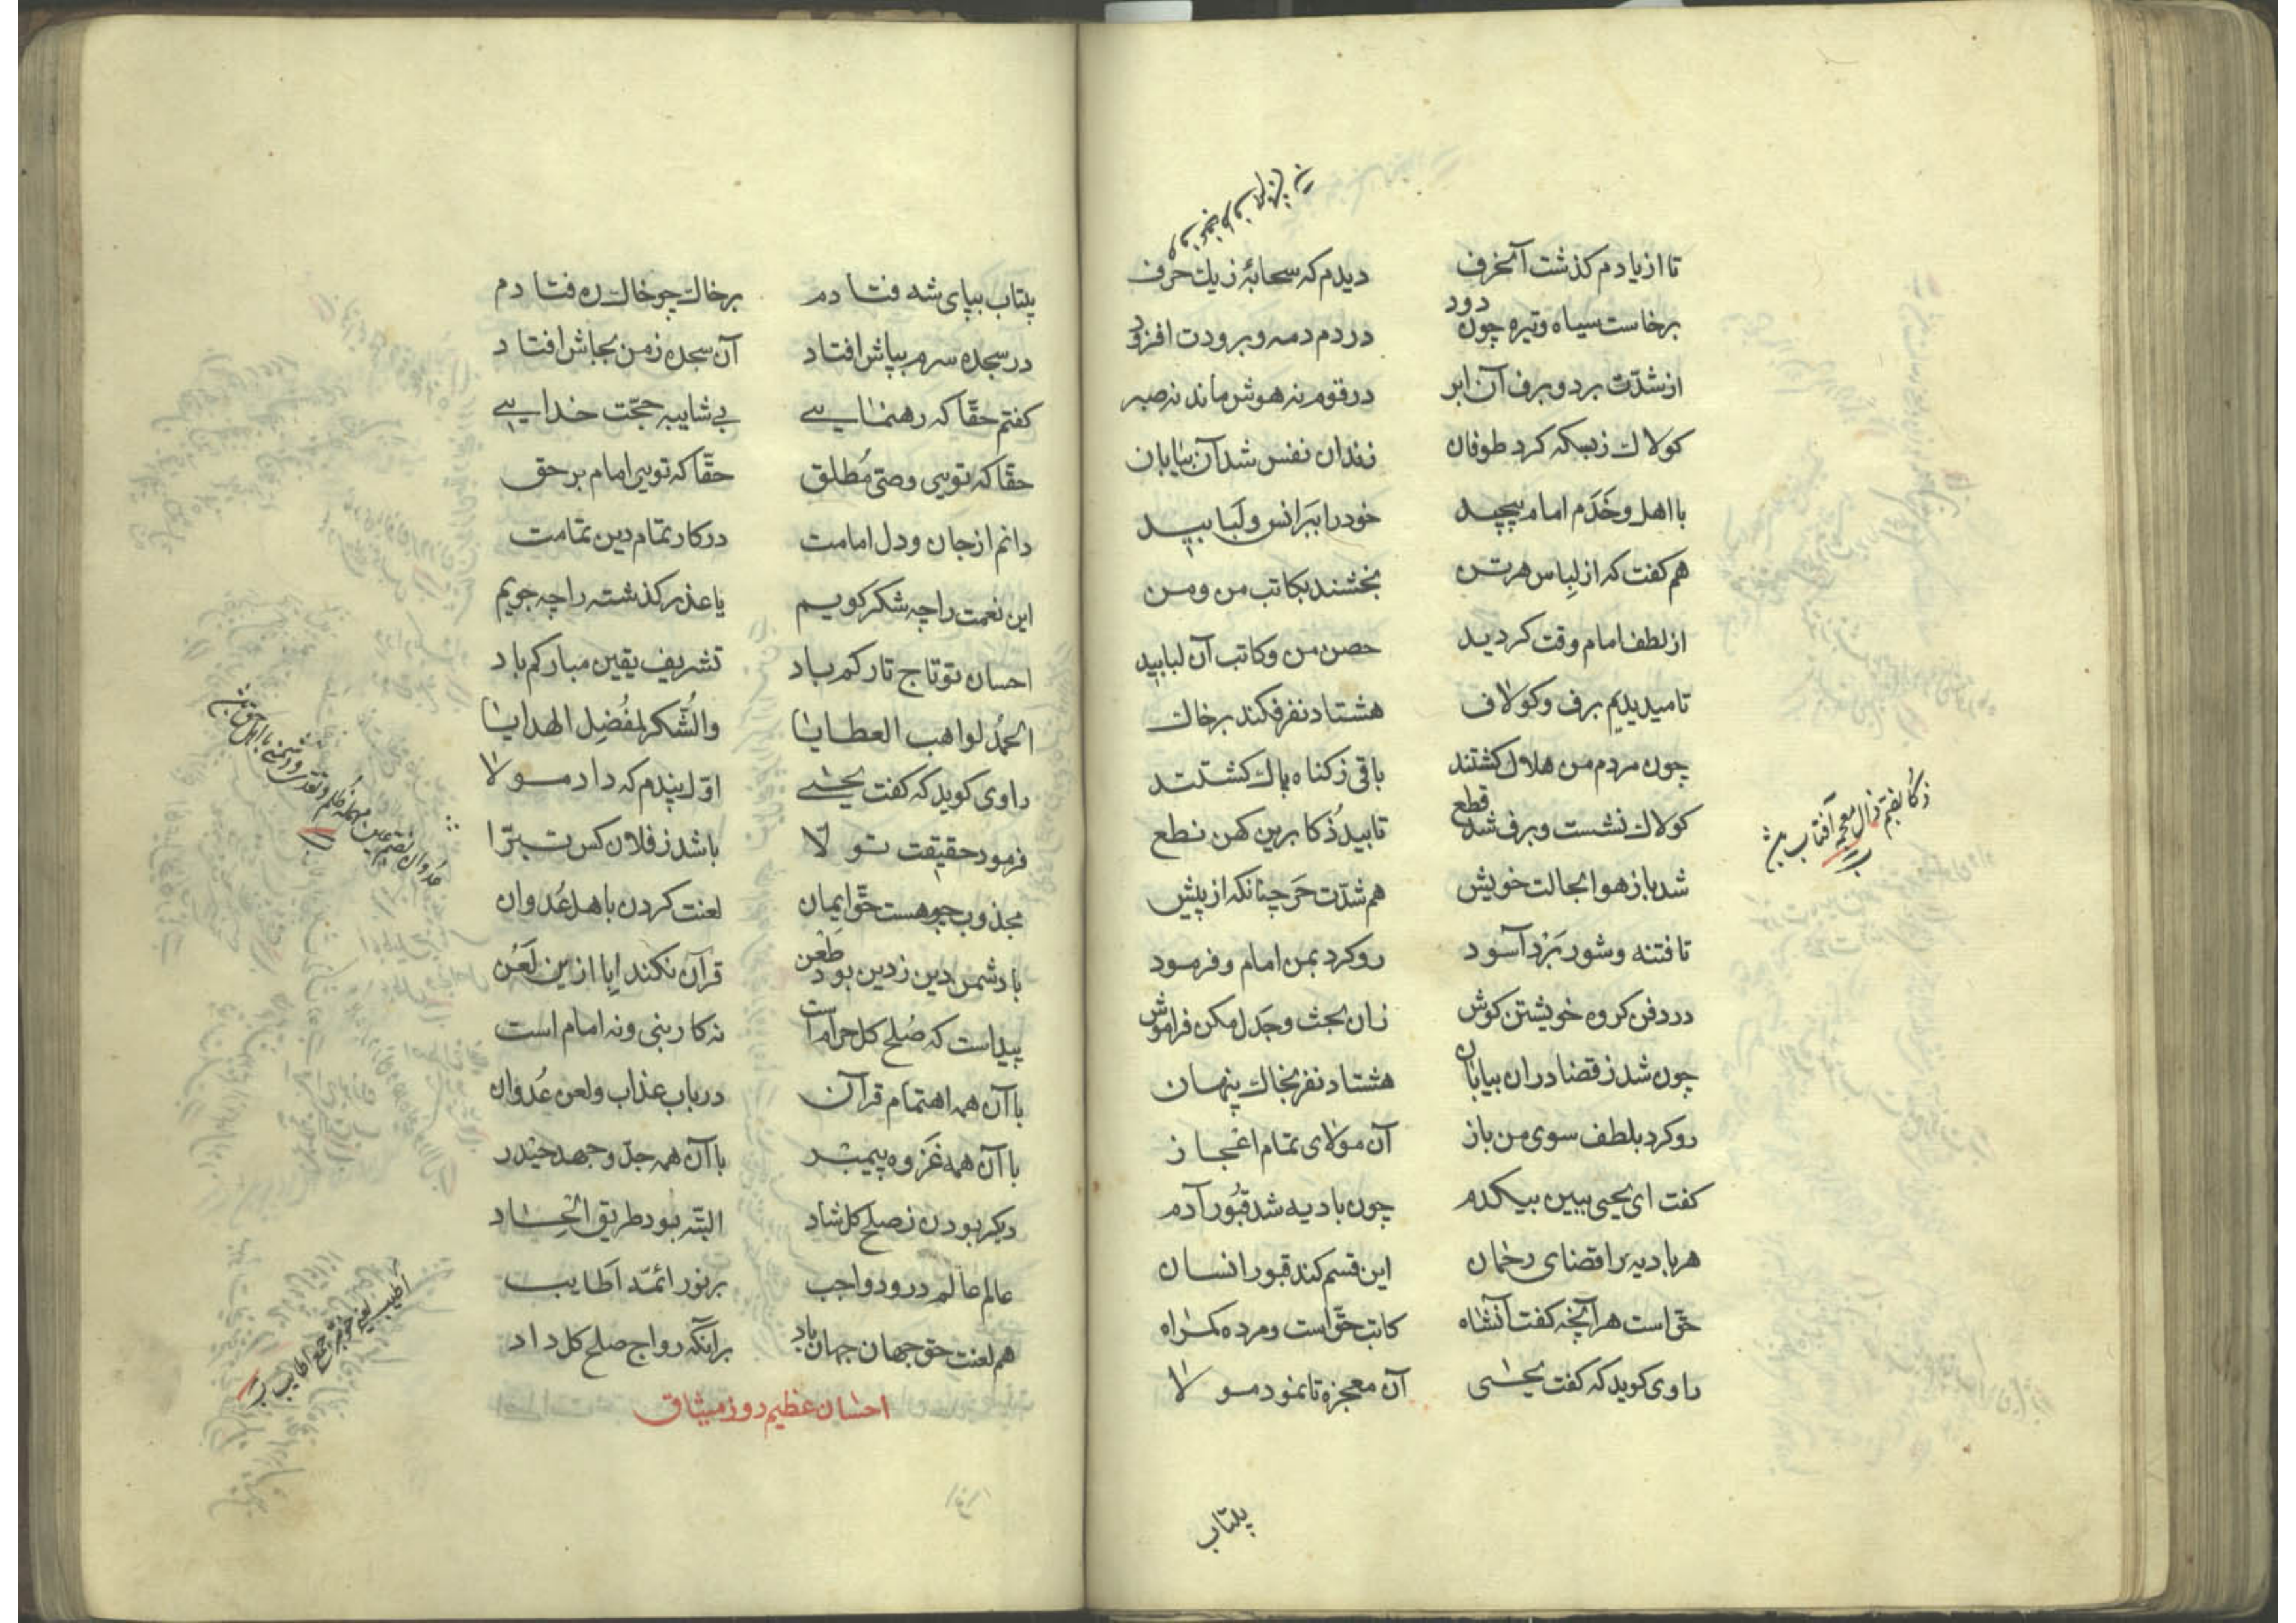 تا از یادم کذشت آنحرف دیدم که سحابهٔ زیك حرف
برخاست سیاه وتیره چون دود در دم دمه و برودت افزود
از شدّت برد و برف آن ابر در قوم نه هوش ماند نه صبر
کولاك زبسکه کرد طوفان زندان نفس شد آن بیابان
با اهل وخَدَم امام پیچید خود را ببَرانس ولَبابید
هم کفت که از لِباس هر تن بخشند بکاتب من ومن
از لطف امام وقت کردید حصن من وکاتب آن لبابید
تا میدیدم برف وکولاك هشتاد نفر فکند بر خاك
چون مردم من هلاك کشتند باقی زکناه پاك کشتند
کولاك نشست و برف شد قطع تابید ذُکا برین کهن نطع
شد باز هوا بحالت خویش هم شدّت حَر چنانکه از پیش
تا فتنه وشور بَرْد آسود رو کرد بمن امام و فرمود
در دفن کروه خویشتن کوش زان بحث وجَدَل مکن فراموش
چون شد زقضا دران بیابان هشتاد نفر بخاك پنهان
رو کرد بلطف سوی من باز آن مولای تمام اعجاز
کفت ای یحیی ببین بیکدم چون بادیه شد قبُور آدم
هر بادیه را قضای رحمان این قسم کند قبور انسان
حقّ است هر آنچه کفت آنشاه کاتب حقّ است ومرده کمراه
راوی کوید که کفت یحیی آن معجزه تا نمود مولا
ذکا بضم ذال معجمه آفتاب
پلتاب
پلتاب بپای شه فتادم بر خاك چو خاك ره فتادم
در سجده سرم بپاش افتاد آن سجده زمن بجاش افتاد
کفتم حقّا که رهنمایی بی شایبه حجّت خدایی
حقّا که تویی وصیّ مُطلق حقّا که تویی امام بر حق
دانم از جان ودل امامت در کار تمام دین تمامت
این نعمت را چه شکر کویم یا عذر کذشته را چه جویم
احسان تو تاج تارکم باد تشریف یقین مبارکم باد
الحمدُ لواهب العطایا والشّکر لمفُضِل الهدایا
راوی کوید که کفت یحیی اوّل پندم که داد مولا
فرمود حقیقت تولّا باشد ز فلان کس تبرّا
مجذوب چو هست حقّ ایمان لعنت کردن باهل عُدوان
با دشمن دین زدین بود طَعْن قرآن نکند اِبا ازین لَعْن
پیداست که صُلح کل حرام است نه کار نبی ونه امام است
با آن همه اهتمام قرآن در باب عذاب ولعن عُدوان
با آن همه غَزوه پیمبر با آن همه جدّ وجهد حیدر
دیکر بودن زصلح کل شاد البتّه بود طریق الحاد
عالم عالم درود واجب بر نور ائمّه اَطایب
هم لعنت حق جهان جهان باد بر آنکه رواج صلح کل داد
احسان عظیم روز میثاق